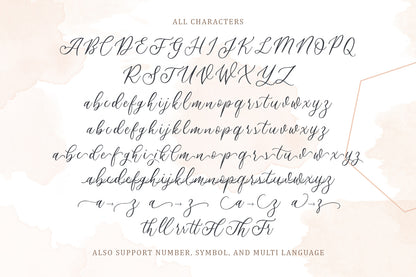 ALL CHARACTERS
ABCDEFGHIJKLMNOPQ
RSTUVWXYZ
abcdefghijklmnopqrstuvwxyz
abcdefghijklmnopqrstuvwxyz
abcdefghijklmnopqrstuvwxyz
abcdefghijklmnopqrstuvwxyz
a→z a→z (a→z a→z
th ll rr tt H Th Fr
ALSO SUPPORT NUMBER, SYMBOL, AND MULTI LANGUAGE